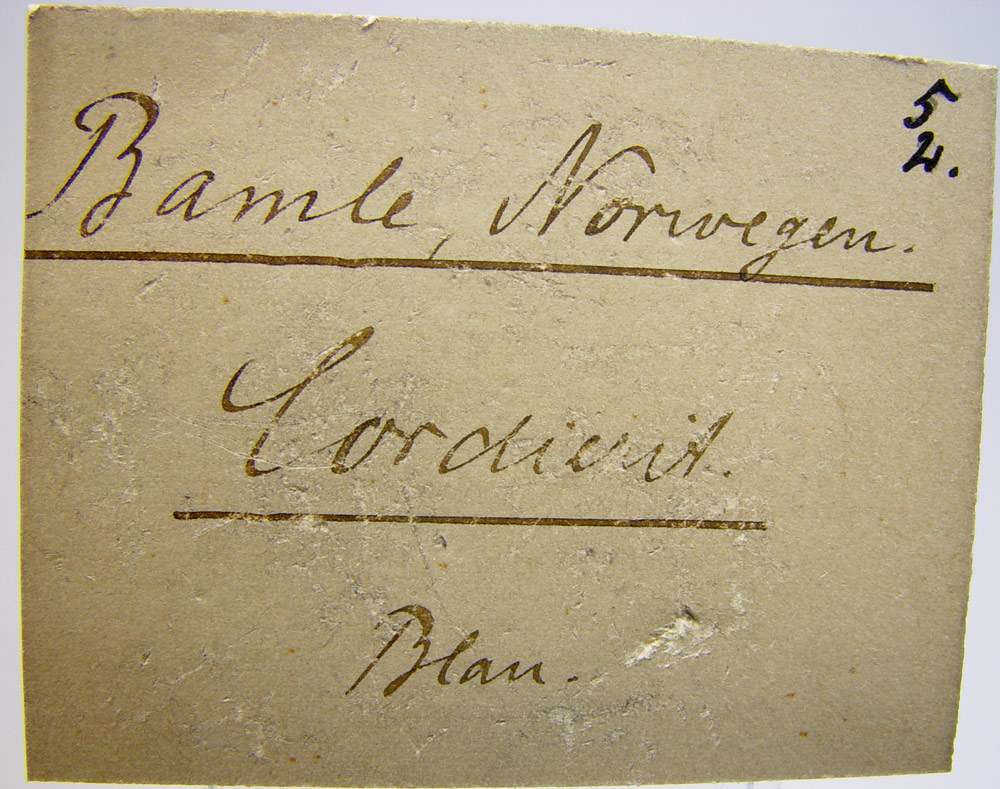 5
2.
Bamle, Norwegen.
Cordierit.
Blau.